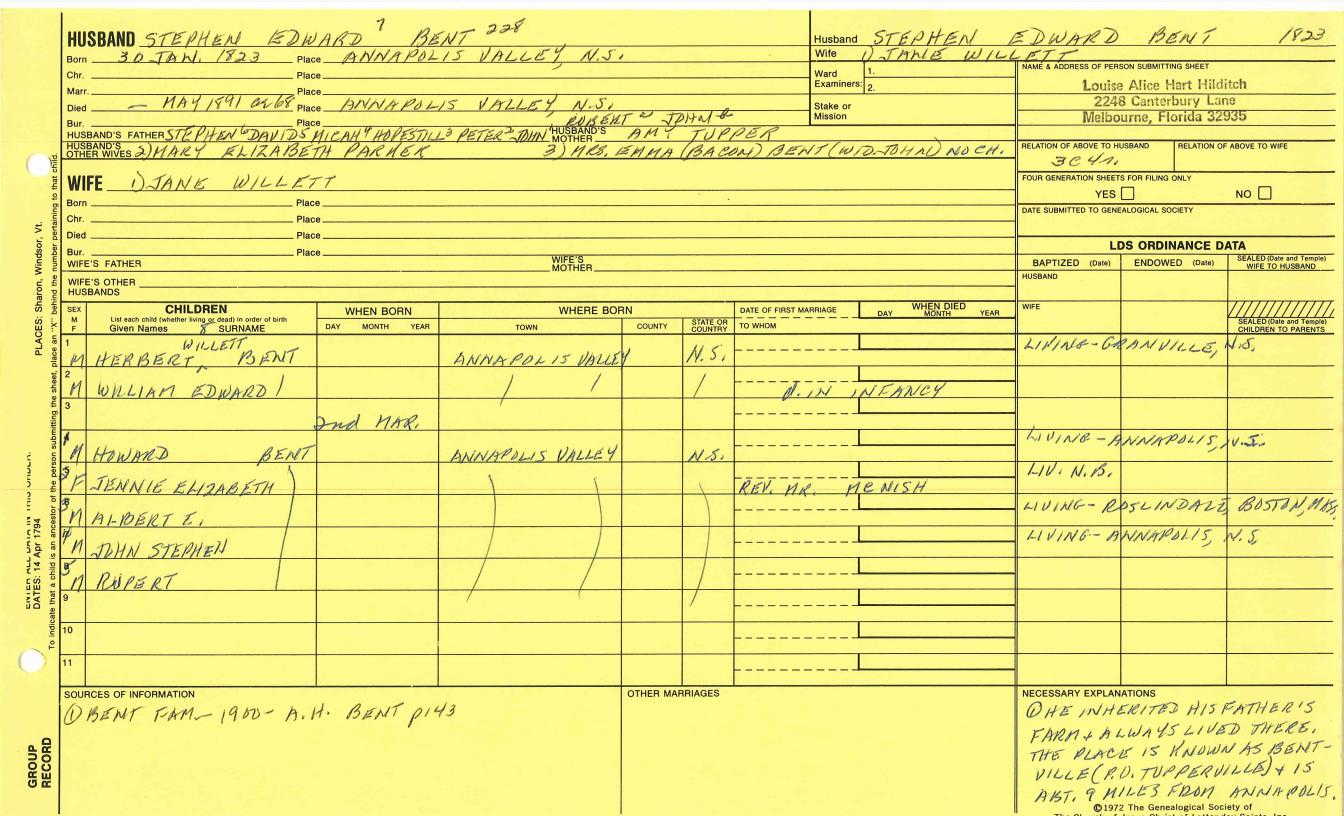 HUSBAND STEPHEN EDWARD 7 BENT 228
Born 30 JAN. 1823 Place ANNAPOLIS VALLEY, N.S.
Chr. Place
Marr. Place
Died — MAY 1891 or 68 Place ANNAPOLIS VALLEY, N.S.
Bur. Place
ROBERT JOHN
HUSBAND'S FATHER STEPHEN 6 DAVID 5 MICAH 4 HOPESTILL 3 PETER 2 JOHN 1 HUSBAND'S MOTHER AMY TUPPER
HUSBAND'S OTHER WIVES 2) MARY ELIZABETH PARKER 3) MRS. EMMA (BACON) BENT (WID. JOHN) NO CH.
Husband STEPHEN EDWARD BENT 1823
Wife 1) JANE WILLETT
Ward Examiners: 1.
2.
Stake or Mission
NAME & ADDRESS OF PERSON SUBMITTING SHEET
Louise Alice Hart Hilditch
2248 Canterbury Lane
Melbourne, Florida 32935
RELATION OF ABOVE TO HUSBAND RELATION OF ABOVE TO WIFE
3C 4r.
FOUR GENERATION SHEETS FOR FILING ONLY
YES NO
DATE SUBMITTED TO GENEALOGICAL SOCIETY
WIFE 1) JANE WILLETT
Born Place
Chr. Place
Died Place
Bur. Place
WIFE'S FATHER WIFE'S MOTHER
WIFE'S OTHER HUSBANDS
LDS ORDINANCE DATA
BAPTIZED (Date) ENDOWED (Date) SEALED (Date and Temple) WIFE TO HUSBAND
HUSBAND
WIFE
SEALED (Date and Temple) CHILDREN TO PARENTS
SEX M F
CHILDREN
List each child (whether living or dead) in order of birth
Given Names 8 SURNAME
WHEN BORN
DAY MONTH YEAR
WHERE BORN
TOWN COUNTY STATE OR COUNTRY
DATE OF FIRST MARRIAGE
TO WHOM
WHEN DIED
DAY MONTH YEAR
1 M HERBERT WILLETT BENT ANNAPOLIS VALLEY N.S. LIVING - GRANVILLE, N.S.
2 M WILLIAM EDWARD D. IN INFANCY
3 2nd MAR.
M HOWARD BENT ANNAPOLIS VALLEY N.S. LIVING - ANNAPOLIS, N.S.
F JENNIE ELIZABETH REV. MR. McNISH LIV. N.B.
M ALBERT E. LIVING - ROSLINDALE, BOSTON, MASS.
M JOHN STEPHEN LIVING - ANNAPOLIS, N.S.
M RUPERT
9
10
11
SOURCES OF INFORMATION
① BENT FAM - 1900 - A.H. BENT p143
OTHER MARRIAGES
NECESSARY EXPLANATIONS
① HE INHERITED HIS FATHER'S
FARM & ALWAYS LIVED THERE.
THE PLACE IS KNOWN AS BENT-
VILLE (P.O. TUPPERVILLE) & IS
ABT. 9 MILES FROM ANNAPOLIS.
©1972 The Genealogical Society of
The Church of Jesus Christ of Latter-day Saints, Inc.
PLACES: Sharon, Windsor, Vt.
ENTER ALL DATA IN THIS ORDER:
DATES: 14 Apr 1794
To indicate that a child is an ancestor of the person submitting the sheet, place an "X" behind the number pertaining to that child.
GROUP RECORD